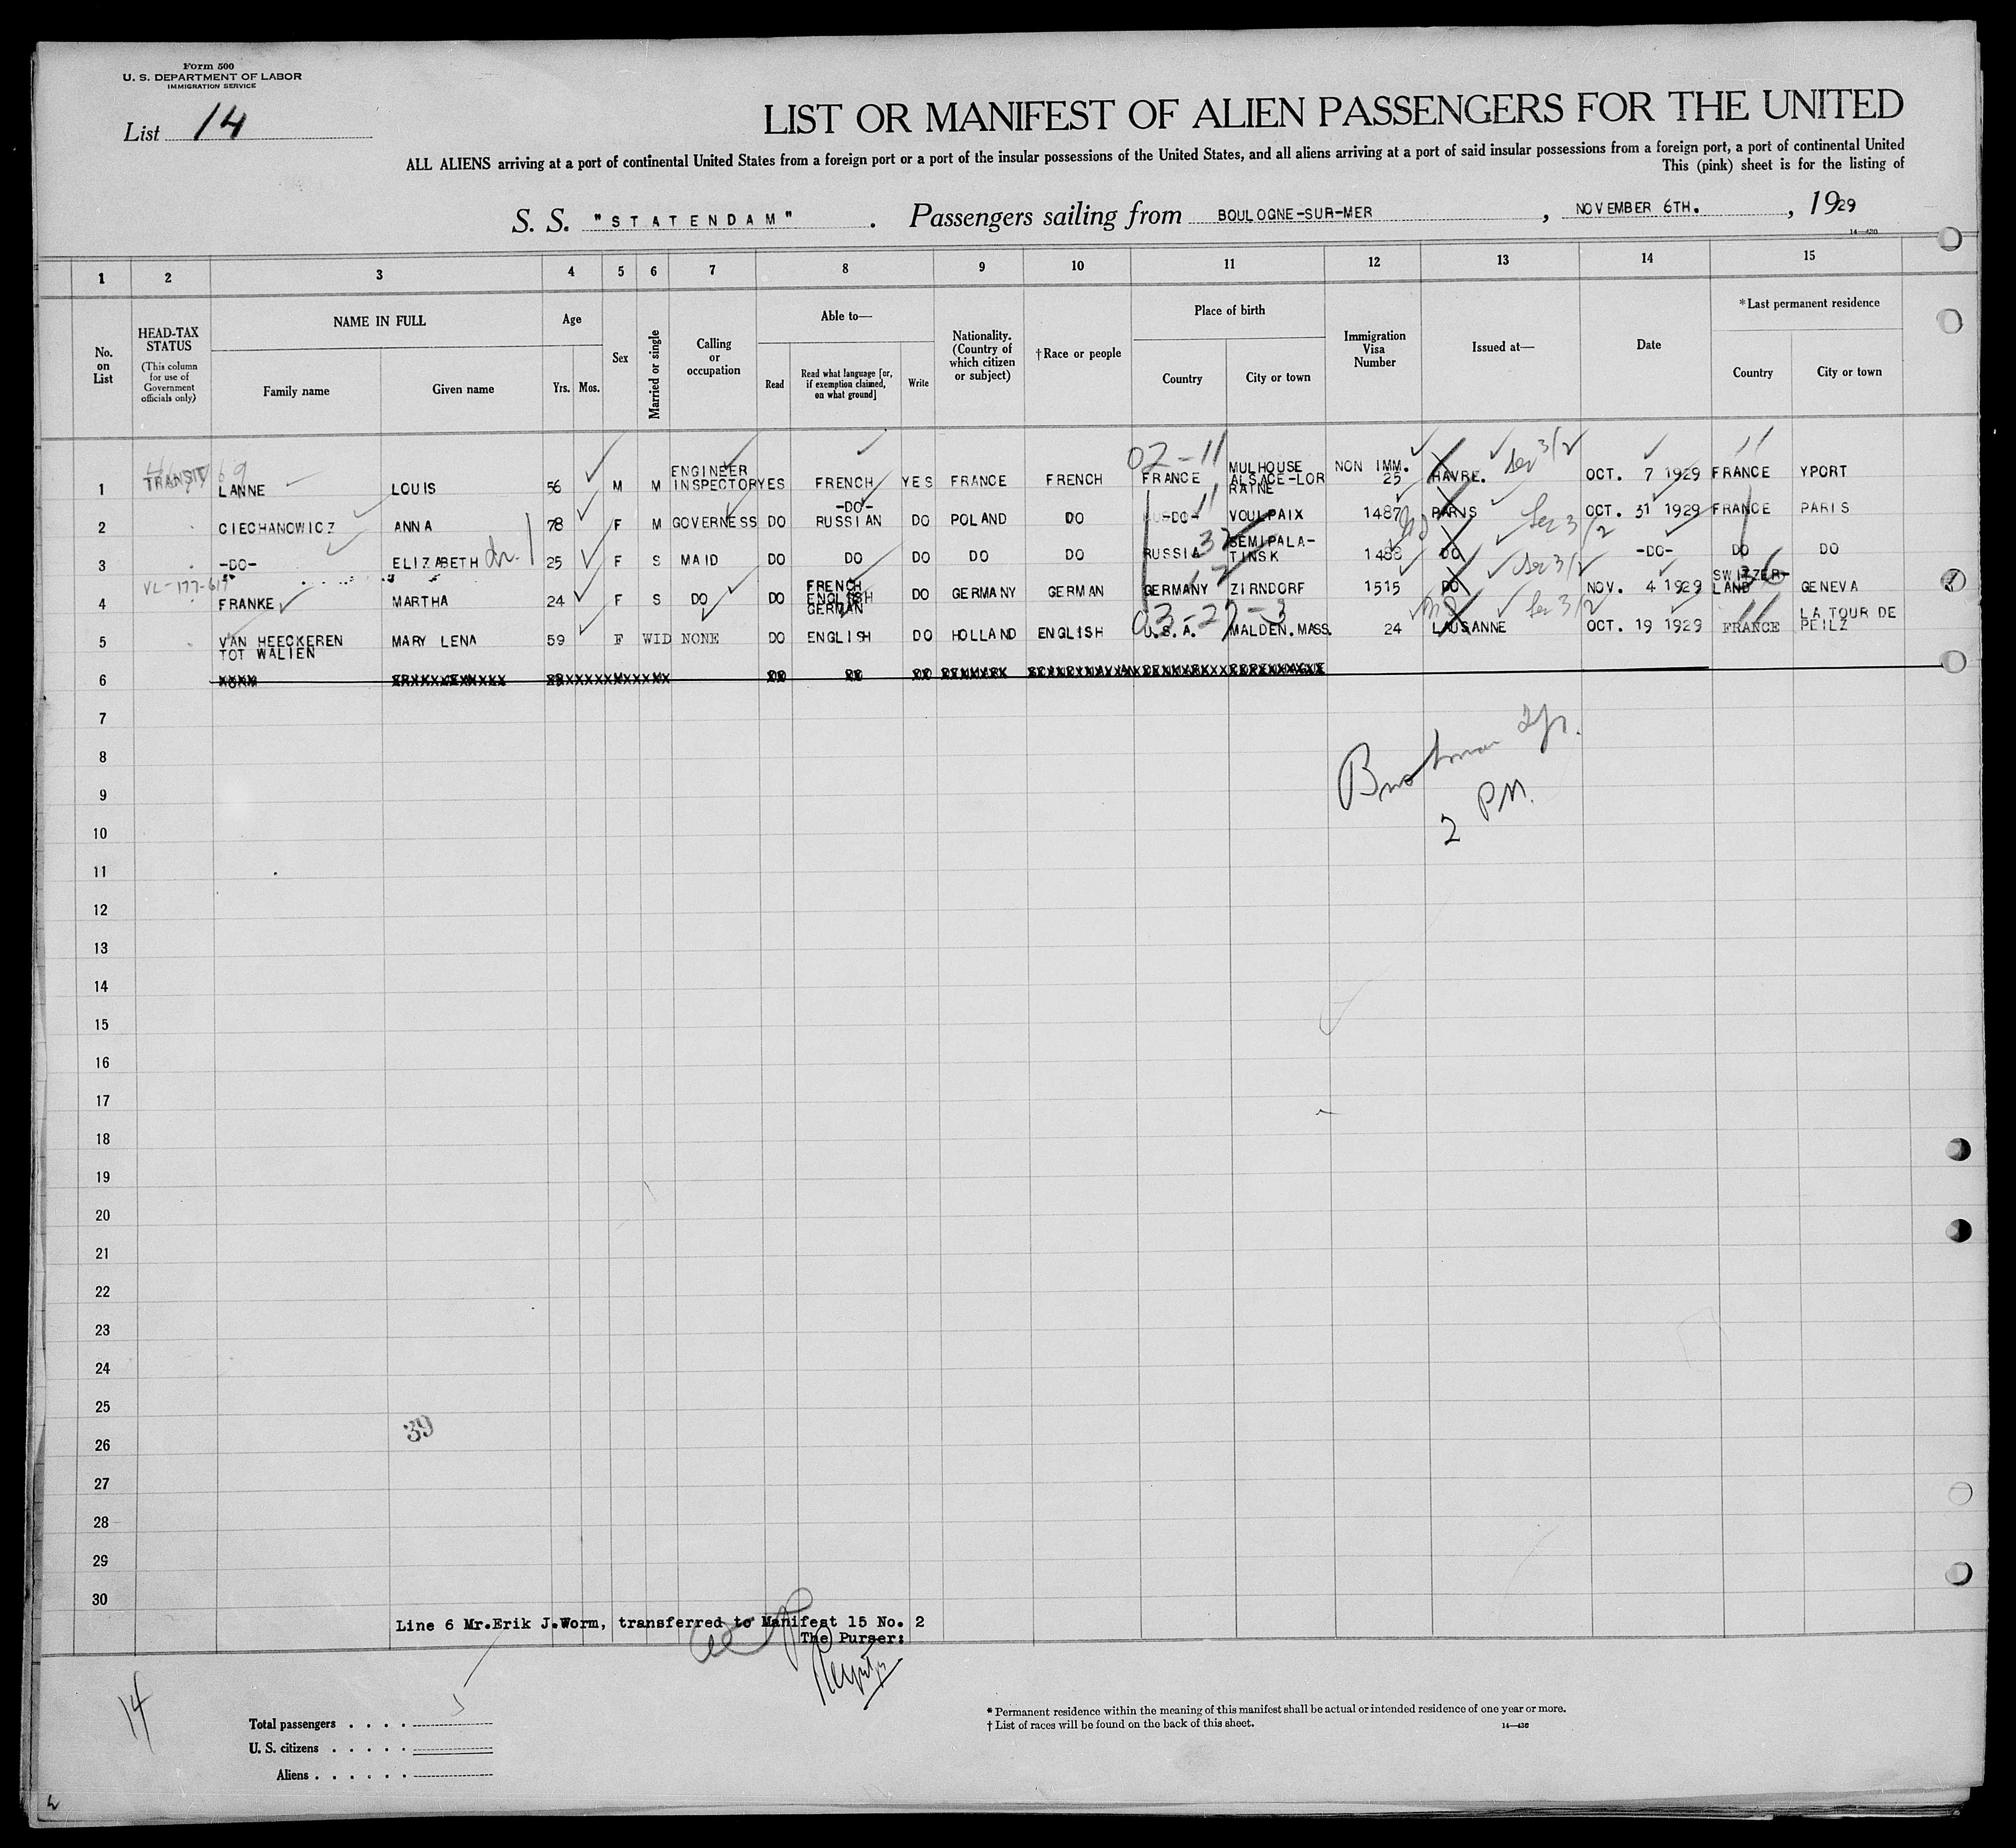 Form 500
U. S. DEPARTMENT OF LABOR
IMMIGRATION SERVICE
List 14
LIST OR MANIFEST OF ALIEN PASSENGERS FOR THE UNITED
ALL ALIENS arriving at a port of continental United States from a foreign port or a port of the insular possessions of the United States, and all aliens arriving at a port of said insular possessions from a foreign port, a port of continental United
This (pink) sheet is for the listing of
S. S. "STATENDAM" . Passengers sailing from BOULOGNE-SUR-MER , NOVEMBER 6TH. , 1929
14-430
1 2 3 4 5 6 7 8 9 10 11 12 13 14 15
No. on List
HEAD-TAX STATUS
(This column for use of Government officials only)
NAME IN FULL
Family name
Given name
Age
Yrs. Mos.
Sex
Married or single
Calling or occupation
Able to—
Read
Read what language [or, if exemption claimed, on what ground]
Write
Nationality. (Country of which citizen or subject)
†Race or people
Place of birth
Country
City or town
Immigration Visa Number
Issued at—
Date
*Last permanent residence
Country
City or town
02-11 11
1 TRANSIT LANNE LOUIS 56 M M ENGINEER INSPECTOR YES FRENCH YES FRANCE FRENCH FRANCE MULHOUSE ALSACE-LORRAINE NON IMM. 25 HAVRE. Sec 3/2 OCT. 7 1929 FRANCE YPORT
2 CIECHANOWICZ ANNA 78 F M GOVERNESS DO -DO- RUSSIAN DO POLAND DO -DO- 11 VOULPAIX 1487 PARIS Sec 3/2 OCT. 31 1929 FRANCE PARIS
3 -DO- ELIZABETH 25 F S MAID DO DO DO DO DO RUSSIA SEMIPALA-TINSK 1488 DO Sec 3/2 -DO- DO DO
VL-177-617
4 FRANKE MARTHA 24 F S DO DO FRENCH ENGLISH GERMAN DO GERMANY GERMAN GERMANY 12 ZIRNDORF 1515 DO Sec 3/2 NOV. 4 1929 SWITZER-LAND 36 GENEVA
03-27-3 11
5 VAN HEECKEREN TOT WALIEN MARY LENA 59 F WID NONE DO ENGLISH DO HOLLAND ENGLISH U.S.A. MALDEN.MASS. 24 LAUSANNE OCT. 19 1929 FRANCE LA TOUR DE PEILZ
6
7
8
9
10
11
12
13
14
15
16
17
18
19
20
21
22
23
24
25
26
27
28
29
30
2 PM.
39
Line 6 Mr.Erik J.Worm, transferred to Manifest 15 No. 2
The Purser:
14
Total passengers . . . . 5
U. S. citizens . . . . .
Aliens . . . . . .
* Permanent residence within the meaning of this manifest shall be actual or intended residence of one year or more.
† List of races will be found on the back of this sheet.
14-430